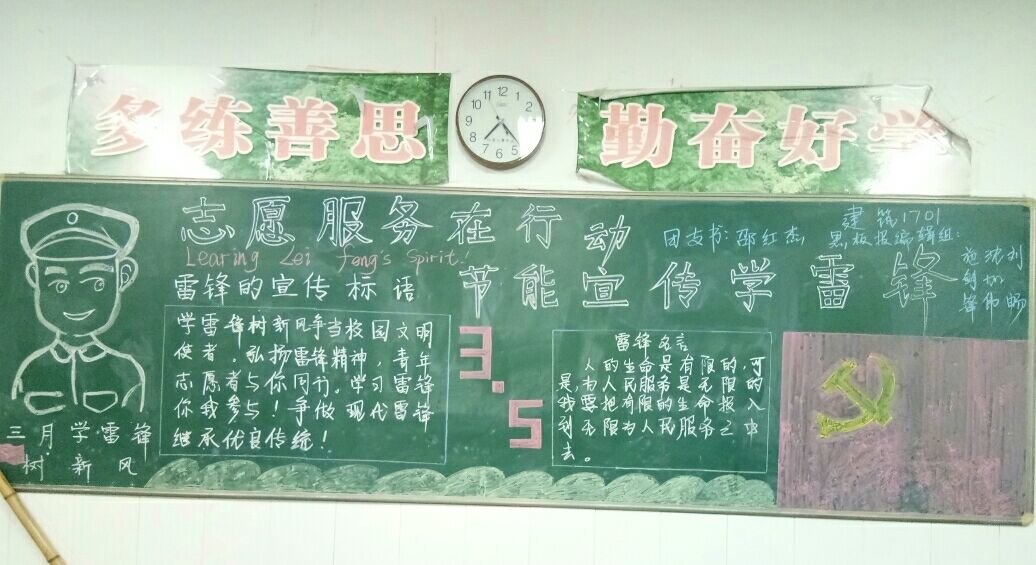 多练善思
勤奋好学
12 1 2 3 4 5 6 7 8 9 10 11
志愿服务在行动
Learing Lei feng's Spirit!
团支书:邵红杰
建筑1701
黑板报编辑组:
节能宣传学雷锋
雷锋的宣传标语
学雷锋树新风争当校园文明
使者。弘扬雷锋精神,青年
志愿者与你同行。学习雷锋
你我参与!争做现代雷锋
继承优良传统!
3.5
雷锋名言
人的生命是有限的,可
是,为人民服务是无限的
我要把有限的生命投入
到无限为人民服务之中
去。
三月学雷锋
树新风